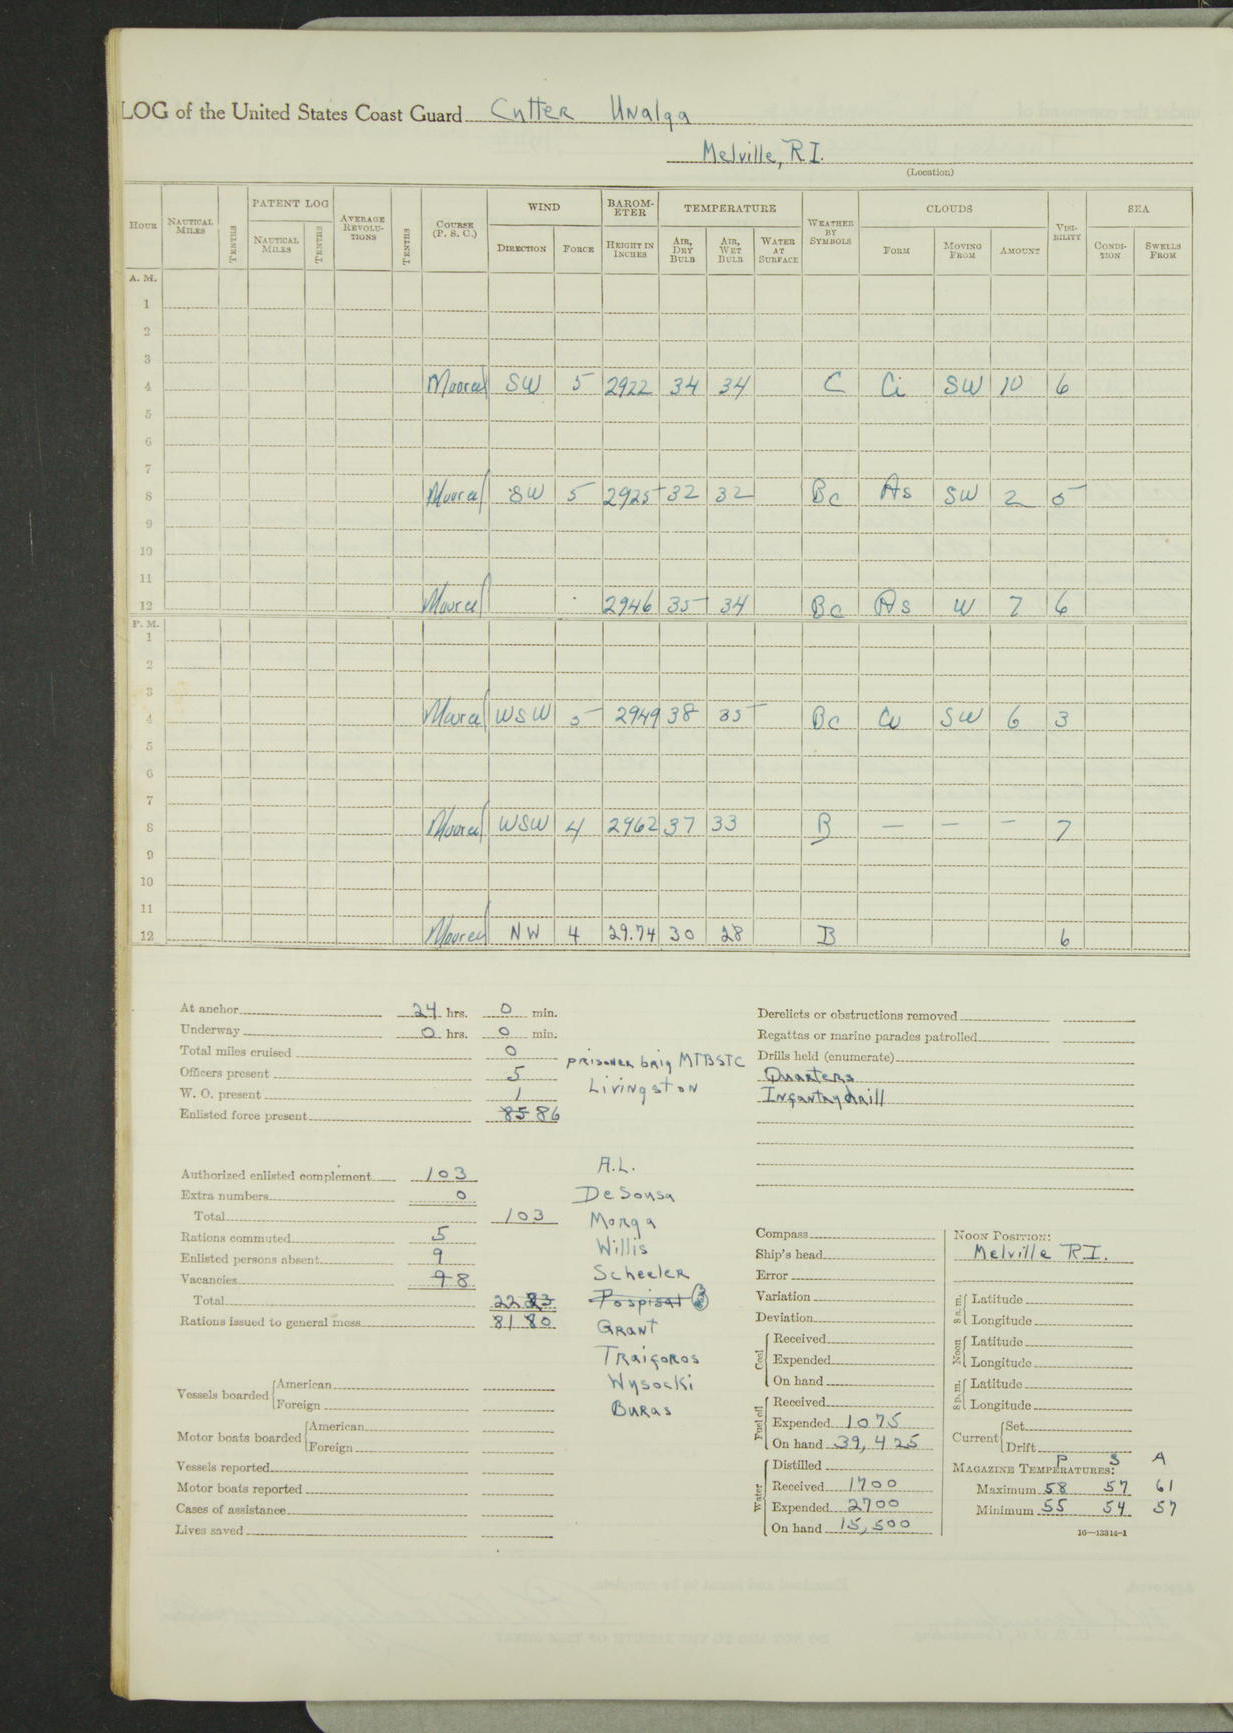 LOG of the United States Coast Guard Cutter Unalga
Melville, R.I.
(Location)
HOUR NAUTICAL MILES TENTHS PATENT LOG NAUTICAL MILES TENTHS AVERAGE REVOLUTIONS TENTHS COURSE (P. S. C.) WIND DIRECTION FORCE BAROMETER HEIGHT IN INCHES TEMPERATURE AIR, DRY BULB AIR, WET BULB WATER AT SURFACE WEATHER BY SYMBOLS CLOUDS FORM MOVING FROM AMOUNT VISIBILITY SEA CONDITION SWELLS FROM
A. M.
1
2
3
4 Moored SW 5 2922 34 34 C Ci SW 10 6
5
6
7
8 Moored SW 5 2925 32 32 Bc As SW 2 5
9
10
11
12 Moored 2946 35 34 Bc As W 7 6
P. M.
1
2
3
4 Moored WSW 5 2949 38 35 Bc Cu SW 6 3
5
6
7
8 Moored WSW 4 2962 37 33 B — — — 7
9
10
11
12 Moored NW 4 29.74 30 28 B 6
At anchor 24 hrs. 0 min.
Underway 0 hrs. 0 min.
Total miles cruised 0
Officers present 5
W. O. present 1
Enlisted force present 85 86
prisoner brig MTBSTC
Livingston
Authorized enlisted complement 103
Extra numbers 0
Total 103
Rations commuted 5
Enlisted persons absent 9
Vacancies 9 8
Total 22 23
Rations issued to general mess 81 80
A.L.
DeSousa
Morga
Willis
Scheeler
Pospisal
Grant
Traigoros
Wysocki
Buras
Vessels boarded American
Foreign
Motor boats boarded American
Foreign
Vessels reported
Motor boats reported
Cases of assistance
Lives saved
Derelicts or obstructions removed
Regattas or marine parades patrolled
Drills held (enumerate)
Quarters
Infantry drill
Compass
Ship's head
Error
Variation
Deviation
Coal Received
Expended
On hand
Fuel oil Received
Expended 1075
On hand 39,425
Water Distilled
Received 1700
Expended 2700
On hand 15,500
NOON POSITION:
Melville R.I.
8 a.m. Latitude
Longitude
Noon Latitude
Longitude
8 p.m. Latitude
Longitude
Current Set
Drift
P S A
MAGAZINE TEMPERATURES:
Maximum 58 57 61
Minimum 55 54 57
16—13314-1